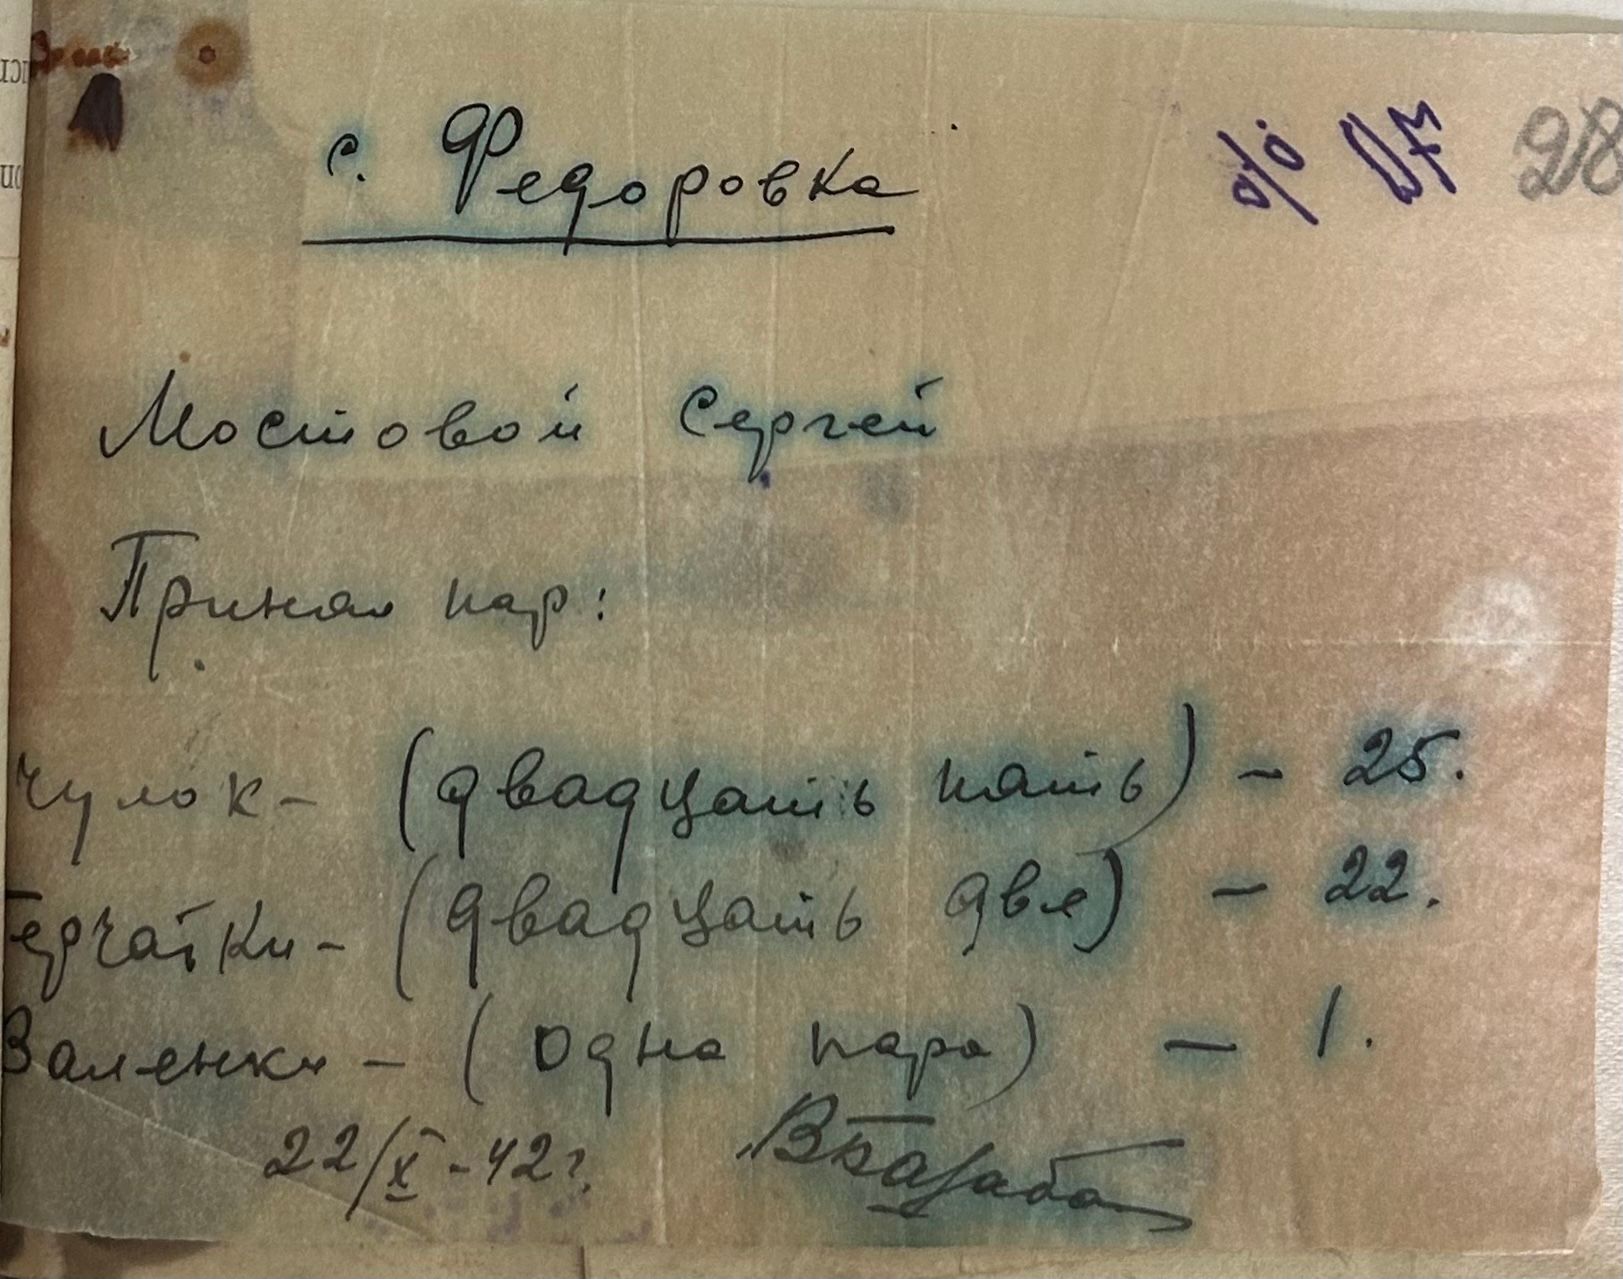 с. Федоровка
28
Мостовой Сергей
Принял пар:
Чулок - (двадцать пять) - 25.
Перчатки - (двадцать две) - 22.
Валенки - (одна пара) - 1.
22/X - 42 г.